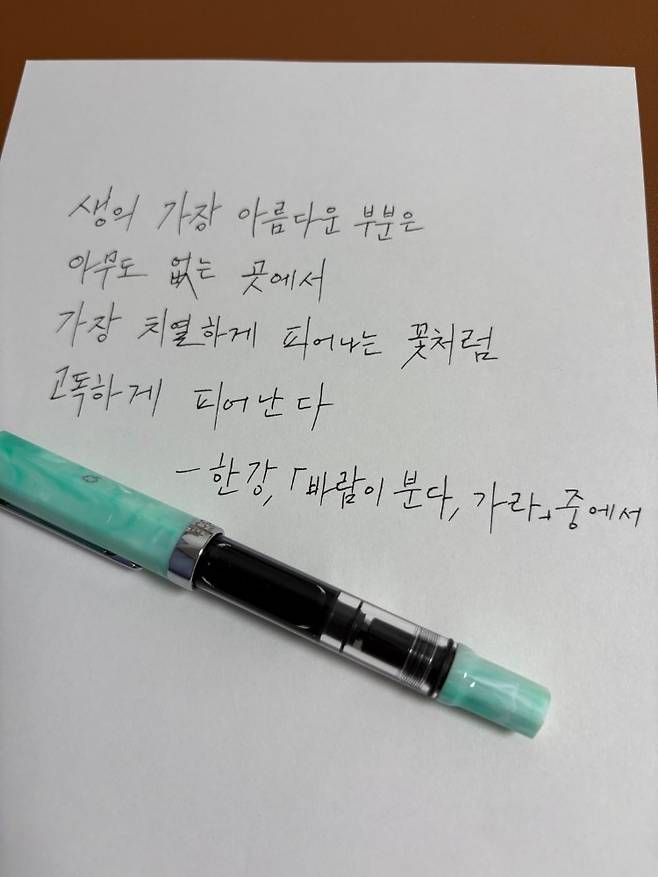 생의 가장 아름다운 부분은
아무도 없는 곳에서
가장 치열하게 피어나는 꽃처럼
고독하게 피어난다
- 한강, 「바람이 분다, 가라」 중에서